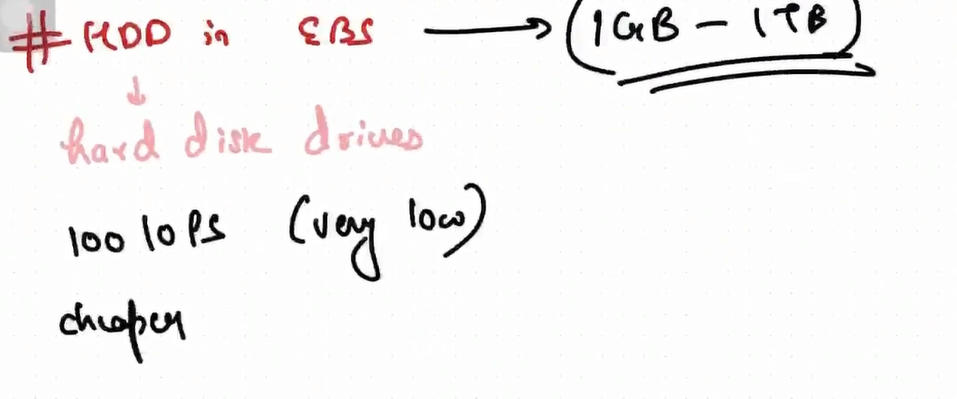 # HDD in EBS → (1GB - 1TB)
↓
hard disk drives
100 IOPS (very low)
cheaper